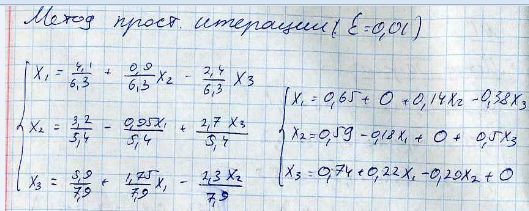 Метод прост. итерации (ε=0,01)
x₁ = 4,1/6,3 + 0,9/6,3 x₂ − 2,4/6,3 x₃
x₂ = 3,2/5,4 − 0,95x₁/5,4 + 2,7 x₃/5,4
x₃ = 5,9/7,9 + 1,75/7,9 x₁ − 2,3 x₂/7,9
x₁ = 0,65 + 0 + 0,14x₂ − 0,38x₃
x₂ = 0,59 − 0,18x₁ + 0 + 0,5x₃
x₃ = 0,74 + 0,22x₁ − 0,29x₂ + 0